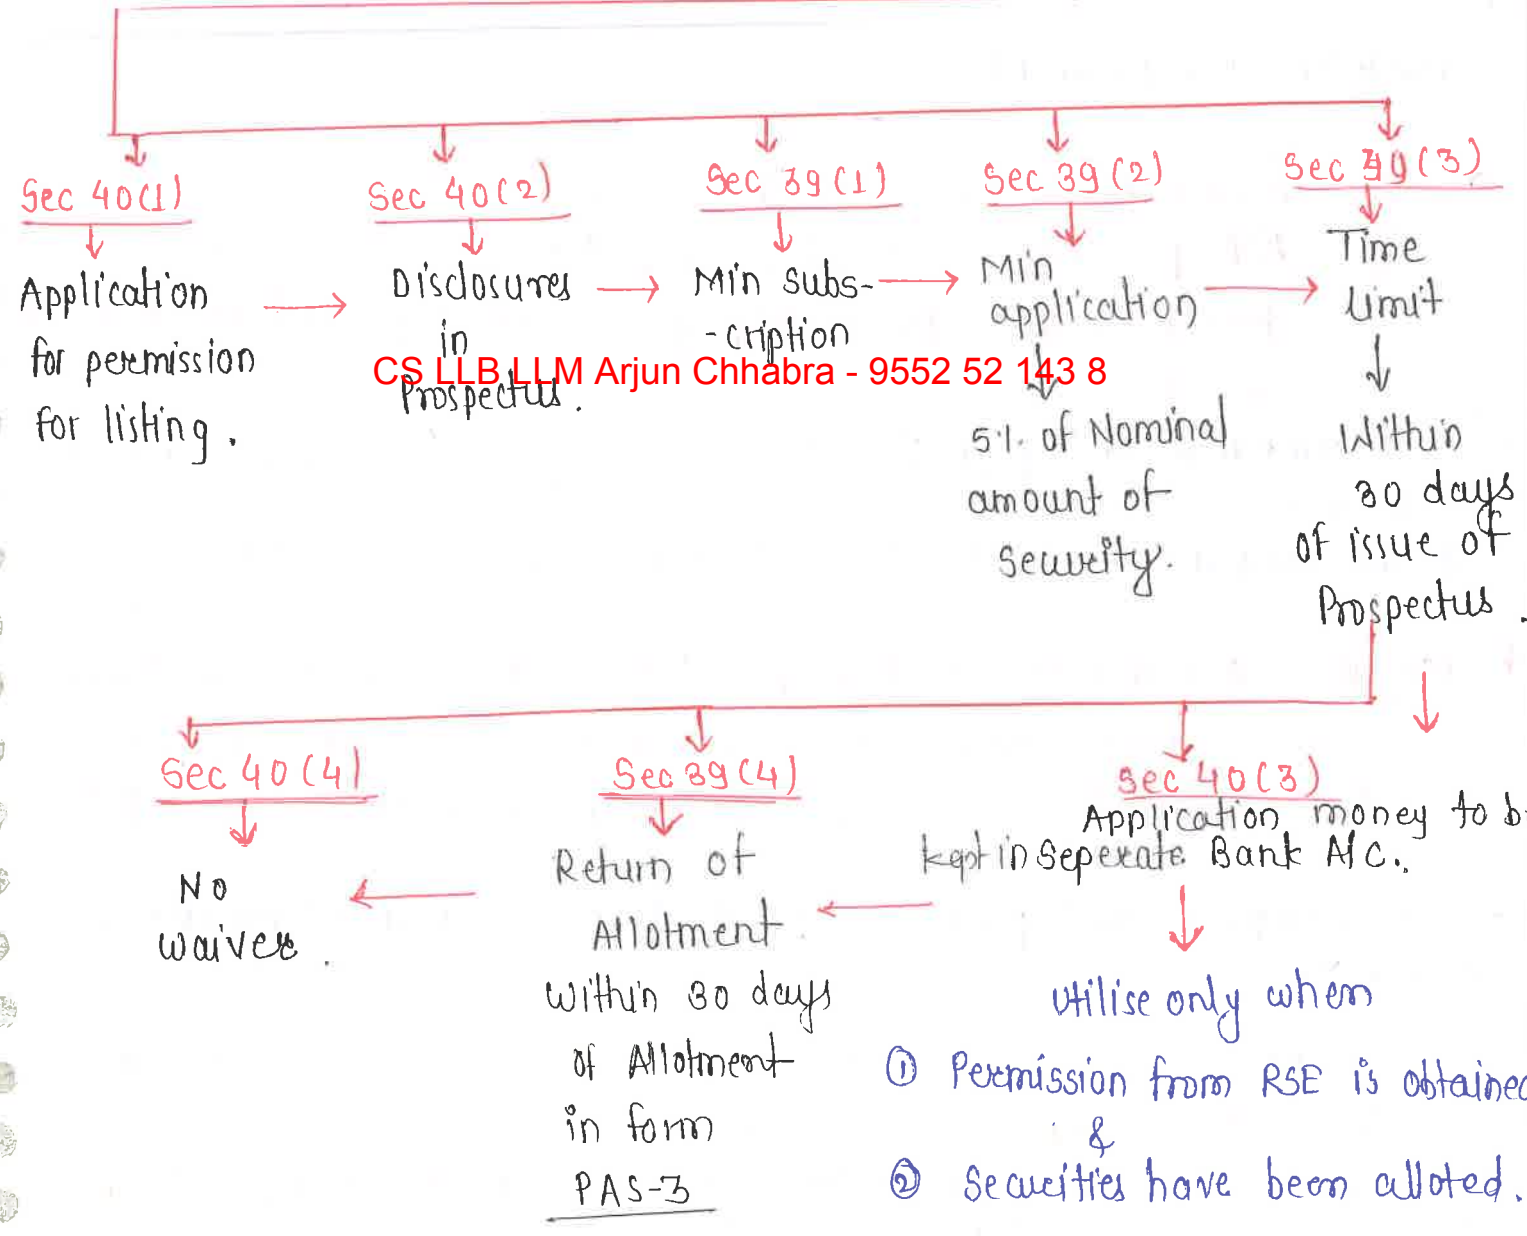 Sec 40(1)
Application
for permission
for listing.
Sec 40(2)
Disclosures
in
Prospectus.
Sec 39(1)
Min subs-
-cription
Sec 39(2)
Min
application
5% of Nominal
amount of
Security.
Sec 39(3)
Time
Limit
Within
30 days
of issue of
Prospectus.
CS LLB LLM Arjun Chhabra - 9552 52 143 8
Sec 40(4)
No
waiver.
Sec 39(4)
Return of
Allotment
Within 30 days
of Allotment
in form
PAS-3
Sec 40(3)
Application money to b
kept in Seperate Bank A/C.
Utilise only when
① Permission from RSE is obtained
&
② Securities have been alloted.